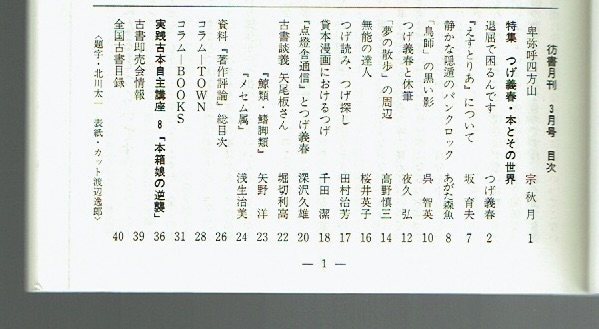 彷書月刊 3月号 目次
卑弥呼四方山 宗 秋月 1
特集 つげ義春・本とその世界
退屈で困るんです つげ義春 2
『えすとりあ』について 坂 育夫 7
静かな隠遁のパンクロック あがた森魚 8
「鳥師」の黒い影 呉 智英 10
つげ義春と休筆 夜久 弘 12
「夢の散歩」の周辺 高野慎三 14
無能の達人 桜井英子 16
つげ読み、つげ探し 田村治芳 17
貸本漫画におけるつげ 千田 潔 18
『点燈舎通信』とつげ義春 深沢久雄 20
古書談義 矢尾板さん 堀切利高 22
『鯨類・鰭脚類』 矢野 洋 23
『メセム属』 浅生治美 24
資料『著作評論』総目次 26
コラム―TOWN 28
コラム―BOOKS 31
実践古本自主講座 8 『本箱娘の逆襲』 36
古書即売会情報 39
全国古書目録 40
〈題字・北川太一 表紙・カット渡辺逸郎〉
― 1 ―